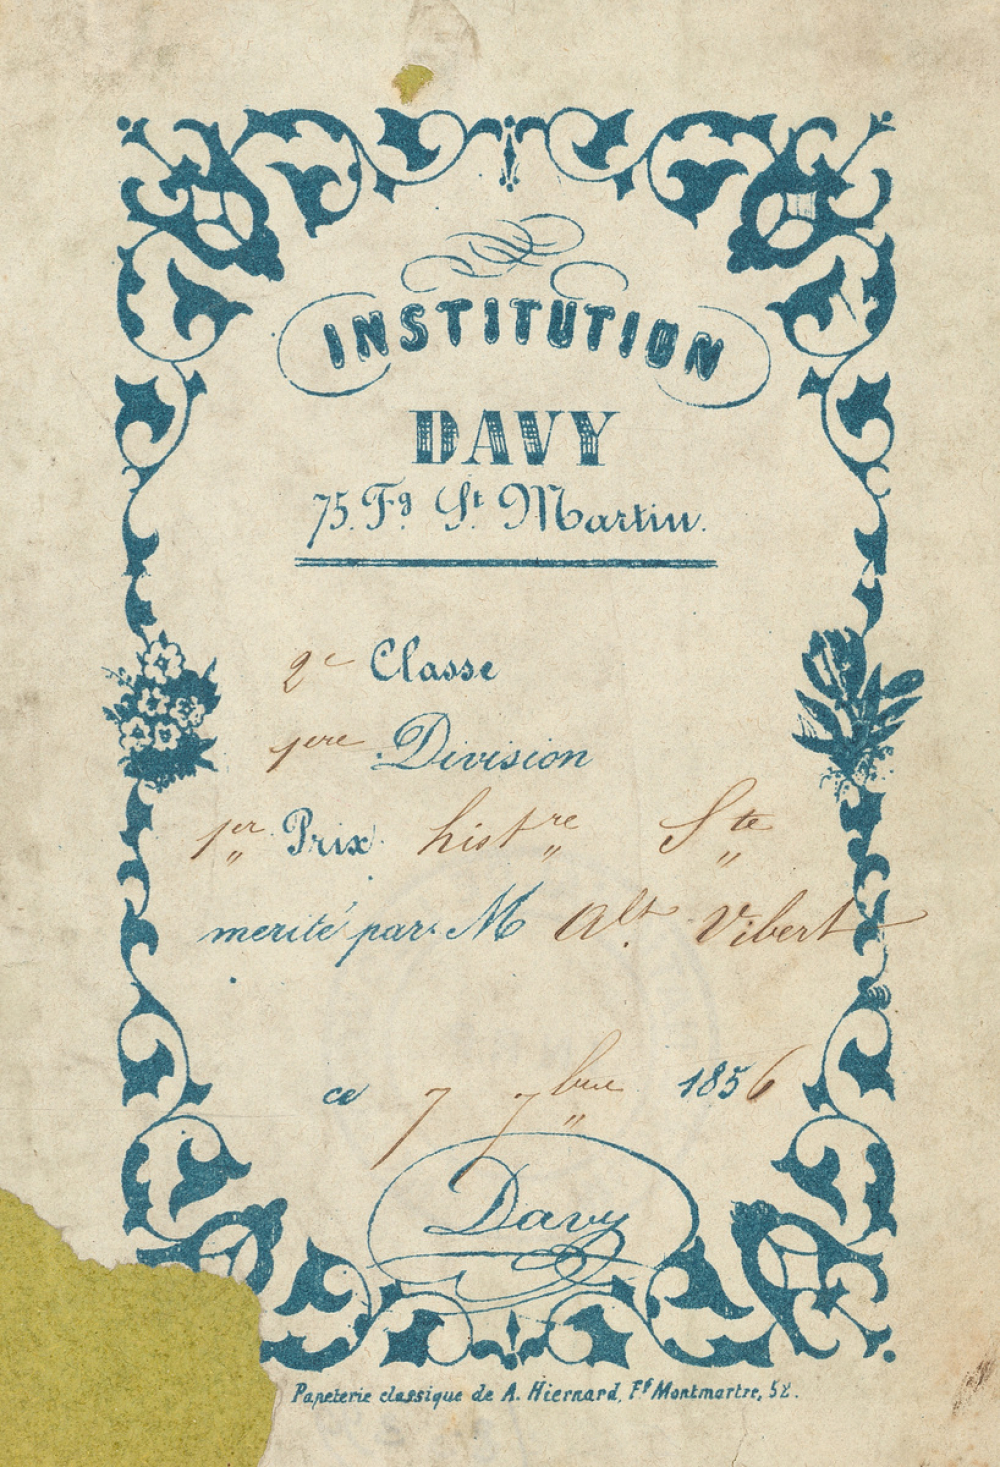 INSTITUTION
DAVY
75. Fg St Martin.
2e Classe
1ere Division
1er Prix histre Ste
merité par M Alt. Vibert
ce 7 7bre 1856
Davy
Papeterie classique de A. Hiernard, Fg Montmartre, 52.